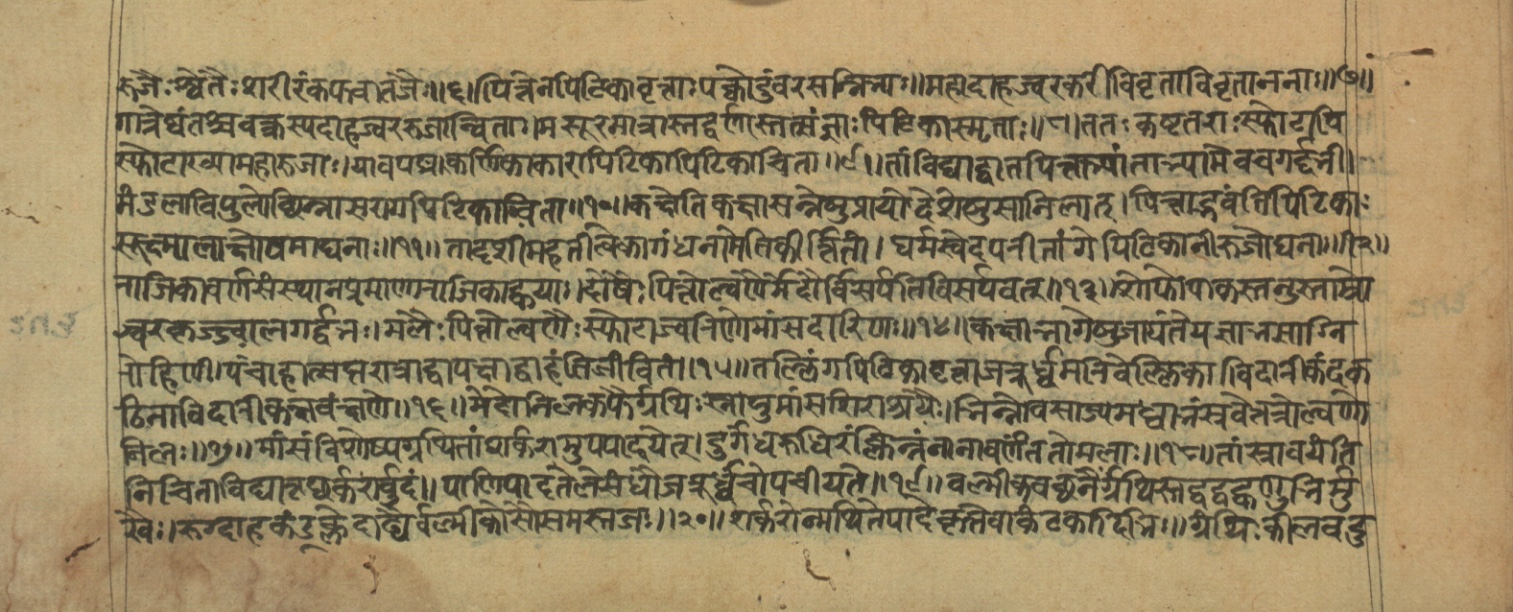 रुजैः श्वेतैः शरीरं कफवातजैः॥६॥पित्तेन पिटिका वृत्ताः पक्वोडुंबरसन्निभाः॥महादाहज्वरकरी विवृता विवृताननाः॥७॥
गात्रेष्वंतश्च वक्त्रस्य दाहज्वररुजान्विताः।मसूरमात्रास्तद्वर्णास्तत्संज्ञाः पिटिकाः स्मृताः॥८॥ततः कष्टतराः स्फोटापि
स्फोटाख्या महारुजाः।या पद्मकर्णिकाकारा पिटिका पिटिकाचिता॥९॥तां विद्याद्वातपित्ताभ्यां ताभ्यामेव च गर्द्दभी।
मंडला विपुलोत्सन्ना सरागपिटिकाचिता॥१०॥कक्षेति कक्षासन्नेषु प्रायो देशेषु सानिलात्।पित्ताद्भवंति पिटिकाः
सूक्ष्मा लाजोपमा घनाः॥११॥तादृशी महती त्वेका गंधनामेति कीर्त्तिता।घर्मस्वेदपरीतांगे पिटिका रुजो घनाः॥१२॥
राजिकावर्णसंस्थानप्रमाणा राजिकाह्वयाः।दोषैः पित्तोल्बणैर्मंदैर्विसर्पति विसर्पवत्॥१३॥शोफोपाकस्तनुस्ताम्रो
ज्वरकृज्जालगर्द्दभः।मलैः पित्तोल्बणैः स्फोटा ज्वरिणो मांसदारिणः॥१४॥कक्षाभागेषु जायंते येग्न्याभा साग्नि
रोहिणी।पंचाहात्सप्तरात्राद्वा पक्षाद्वा हंति जीवितं॥१५॥तल्लिंगा पिटिका वृत्ता जत्रूर्ध्वमिरिवेल्लिका।विदारीकंदक
ठिना विदारी कक्षवंक्षणे॥१६॥मेदोनिलकफैर्ग्रंथिः स्नायुमांससिराश्रयैः।भिन्नो वसाज्यमध्वाभं स्रवेत्तत्रोल्बणो
निलः॥१७॥मांसं विशोष्य ग्रथितां शर्करामुपपादयेत्।दुर्गंधं रुधिरं क्लिन्नं नानावर्णं ततो मलाः॥१८॥तां स्रावयंति
निचितां विद्यात्तच्छर्करार्बुदं॥पाणिपादतले संधौ जत्रूर्ध्वं चोपचीयते॥१९॥वल्मीकवच्छनैर्ग्रंथिस्तद्वद्बह्वणुभिर्मु
खैः।रुग्दाहकंडूक्लेदाढ्यैर्वल्मीकोसौ समस्तजः॥२०॥शर्करोन्मथिते पादे क्षते वा कंटकादिभिः॥ग्रंथिः कीलवदु